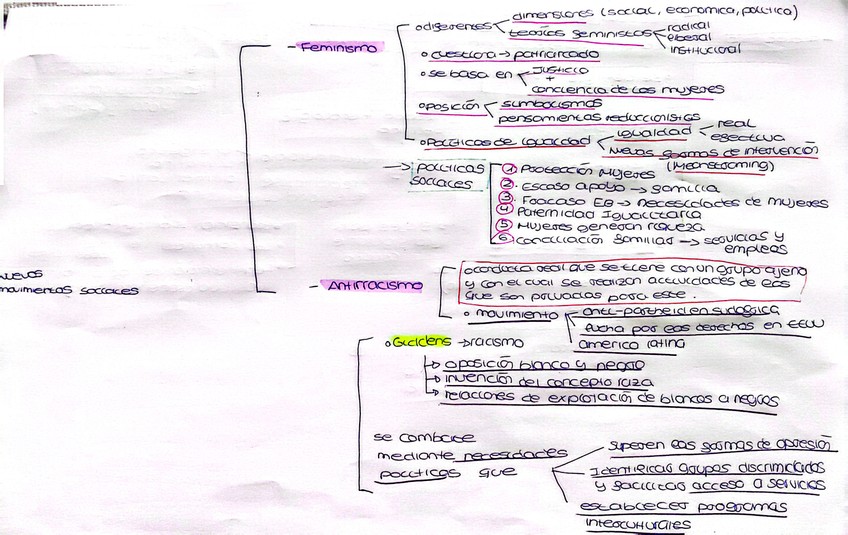 - Feminismo
o diferentes
dimensiones (social, economica, politico)
teorías feministas
radical
liberal
institucional
o cuestiona → patriarcado
o se basa en
Justicia
+
conciencia de las mujeres
oposición
pensamientos reduccionistas
o Políticas de igualdad
igualdad
real
efectiva
nuevas formas de intervención
→ políticas sociales
1 Protección Mujeres
2. Escaso apoyo → familia
3. Fracaso EB → necesidades de mujeres
4 Paternidad Igualitaria
5 Mujeres generan riqueza
6 Conciliación familiar → servicios y
empleos
nuevos
movimientos sociales
- Antirracismo
o conducta real que se tiene con un grupo ajeno
y con el cual se realizan actividades de
que son privadas para este.
o movimiento
lucha por los derechos en EEUU
america latina
o Giddens → racismo
→ oposición blanco y negro
→ invención del concepto raza
→ relaciones de explotación de blancos a negros
se combate
mediante necesidades
políticas que
superen las formas de opresión
Identificar grupos discriminados
y facilitar acceso a servicios
establecer programas
interculturales